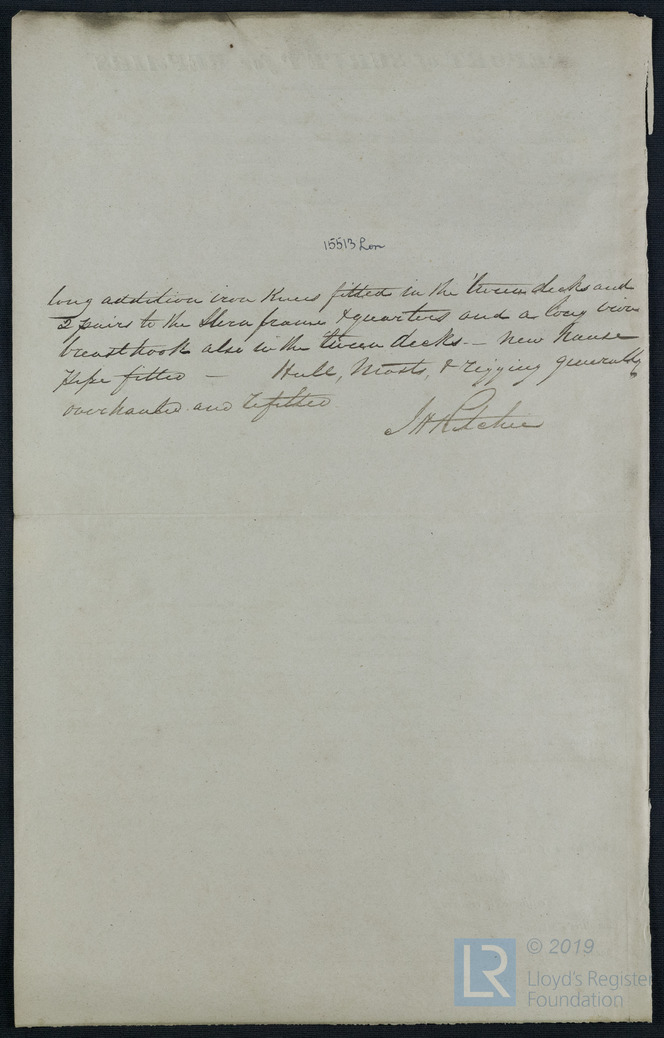 15513 Lon
long addition iron Knees fitted in the 'tween decks and
2 pairs to the Stern frame & quarters and a long iron
breasthook also in the tween decks. — New hause
Pipe fitted — Hull, Masts, & rigging generally
overhauled and refitted
J H Ritchie
LR
© 2019
Lloyd's Register
Foundation